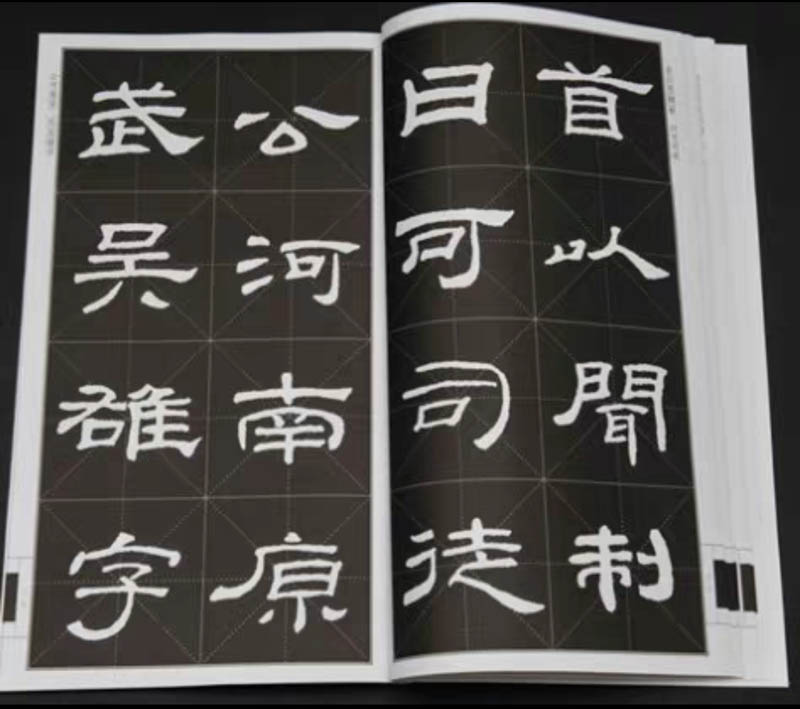 首以聞制
曰可司徒
公河南原
武吳雄字